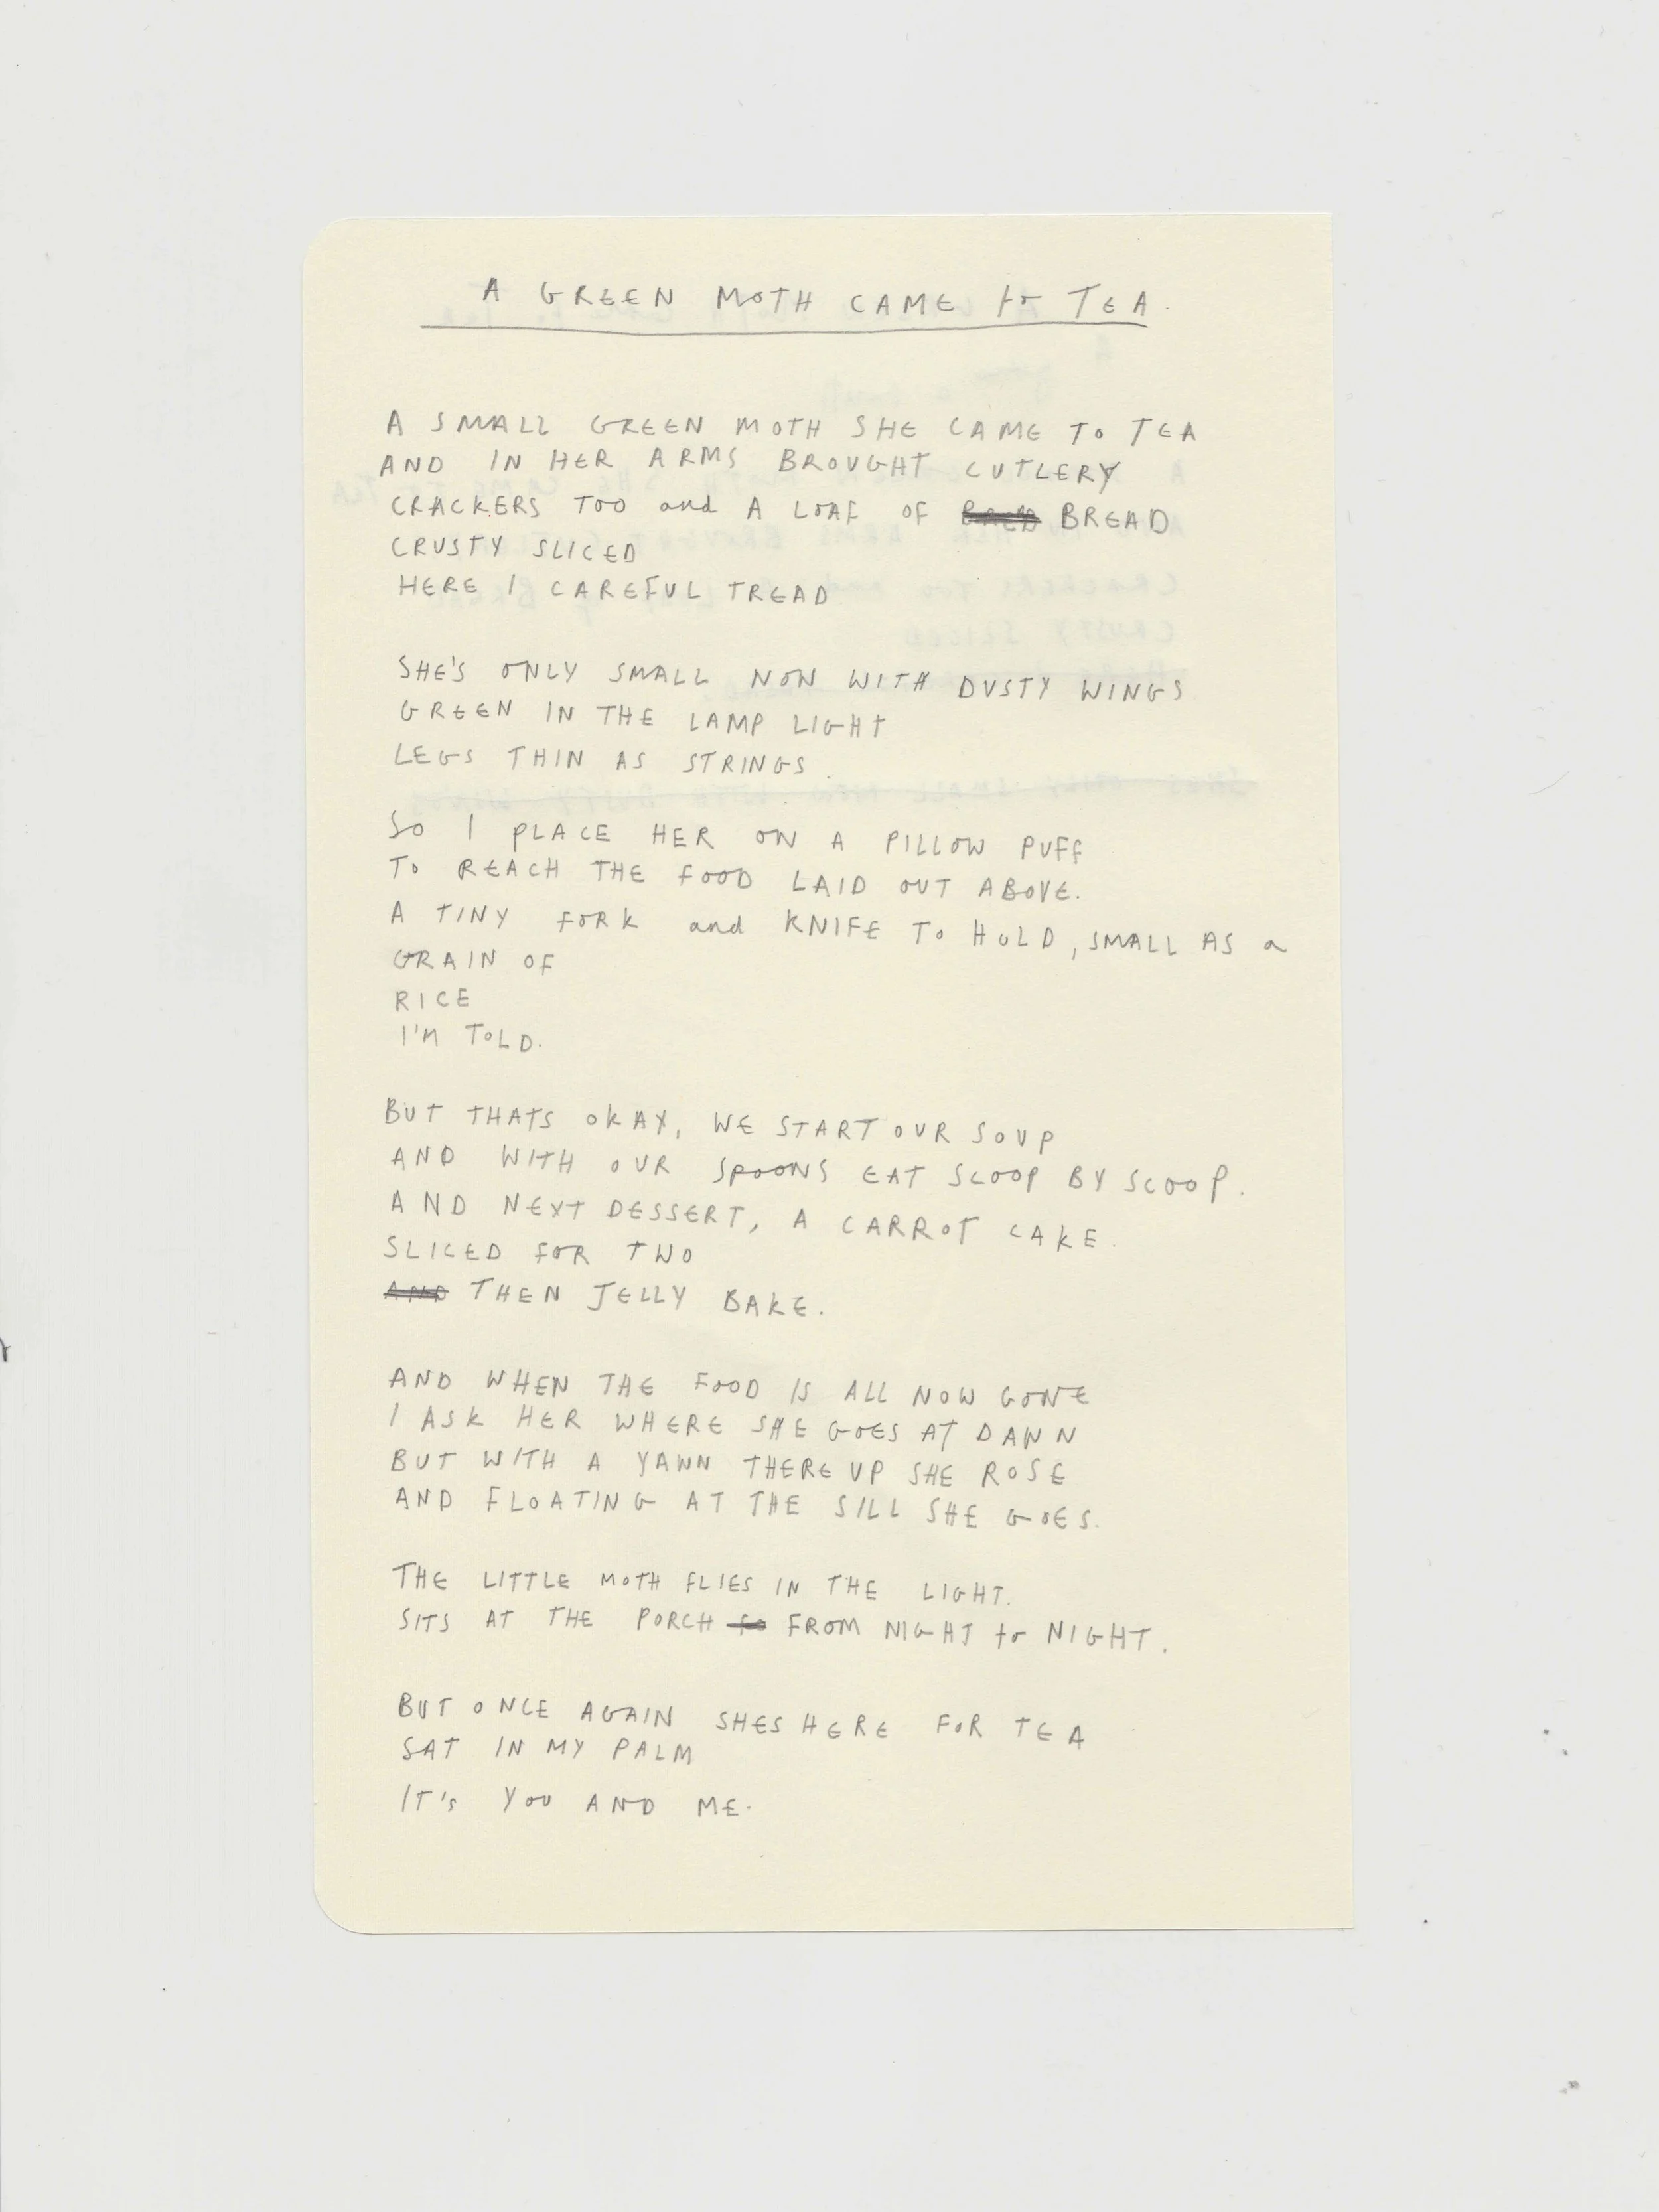 A GREEN MOTH CAME to TEA.
A SMALL GREEN MOTH SHE CAME TO TEA
AND IN HER ARMS BROUGHT CUTLERY
CRACKERS TOO and A LOAF OF BREAD
CRUSTY SLICED
HERE I CAREFUL TREAD
SHE'S ONLY SMALL NOW WITH DUSTY WINGS
GREEN IN THE LAMP LIGHT
LEGS THIN AS STRINGS.
SO I PLACE HER ON A PILLOW PUFF
TO REACH THE FOOD LAID OUT ABOVE.
A TINY FORK and KNIFE TO HOLD, SMALL AS a
GRAIN OF
RICE
I'M TOLD.
BUT THATS OKAY, WE START OUR SOUP
AND WITH OUR SPOONS EAT SCOOP BY SCOOP.
AND NEXT DESSERT, A CARROT CAKE.
SLICED FOR TWO
AND THEN JELLY BAKE.
AND WHEN THE FOOD IS ALL NOW GONE
I ASK HER WHERE SHE GOES AT DAWN
BUT WITH A YAWN THERE UP SHE ROSE
AND FLOATING AT THE SILL SHE GOES.
THE LITTLE MOTH FLIES IN THE LIGHT.
SITS AT THE PORCH FROM NIGHT to NIGHT.
BUT ONCE AGAIN SHES HERE FOR TEA
SAT IN MY PALM
IT'S YOU AND ME.